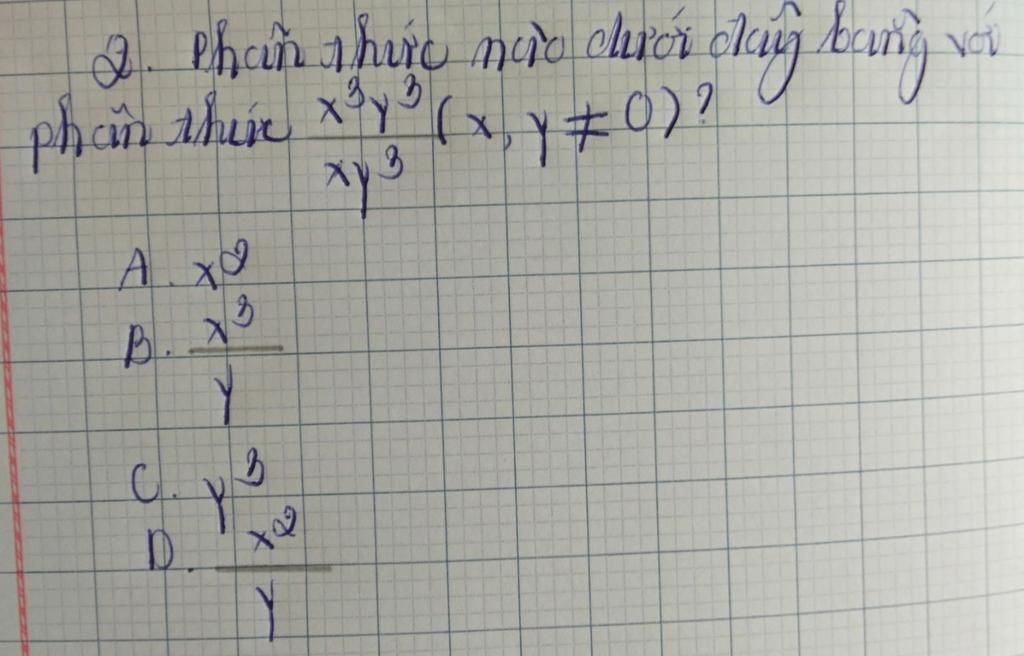 2. Phân thức nào dưới đây bằng với
phân thức x³y³/xy³ (x, y ≠ 0)?
A. x²
B. x³/y
C. y³
D. x²/y